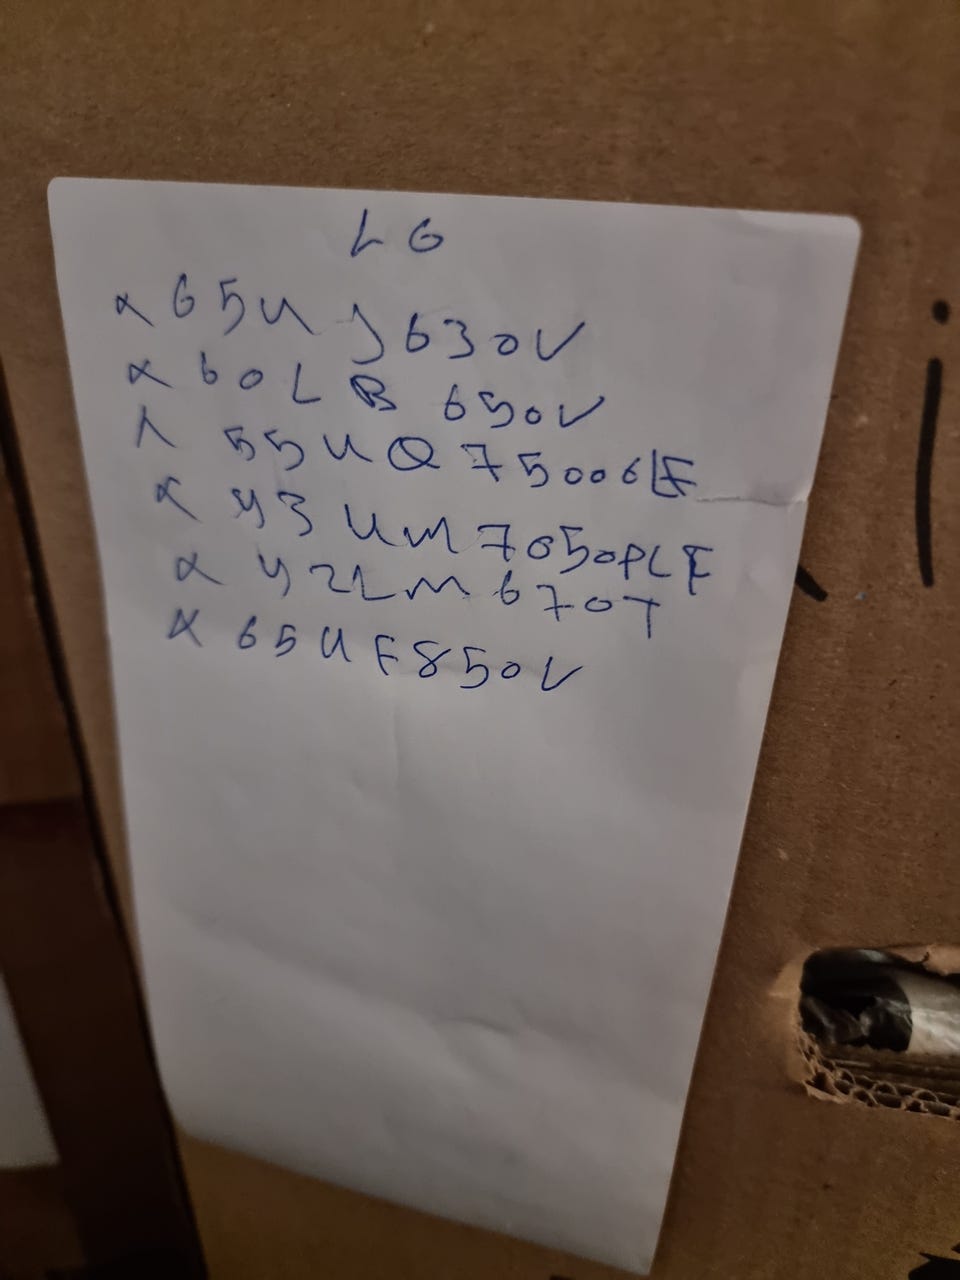 LG
x 65UJ630V
x 60LB650V
x 55UQ75006LF
x 43UM7050PLF
x 42LM670T
x 65UF850V